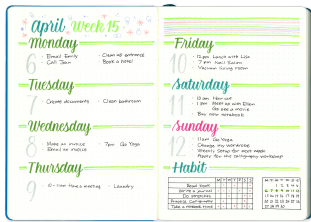 April Week 15
Monday
6
· Email Emily · Clean up entrance
· Call Jean · Book a hotel
Tuesday
7
· Create documents · Clean bathroom
Wednesday
8
· Make an invoice · 7pm Go Yoga
· Email an invoice
Thursday
9
· 10-11am Home meeting · Laundry
Friday
10
· 12pm Lunch with Lisa
· 7pm Nail Salon
· Vacuum living room
Saturday
11
· 10am Hair cut
· 1pm Meet up with Ellen
· Go see a movie
· Buy new notebook
Sunday
12
· 11am Go Yoga
· Change my wardrobe
· Weekly Setup for next week
Habit
M T W T F S S
Read book
Write a journal
Do stretches
Practice Calligraphy
Take a nonsak time